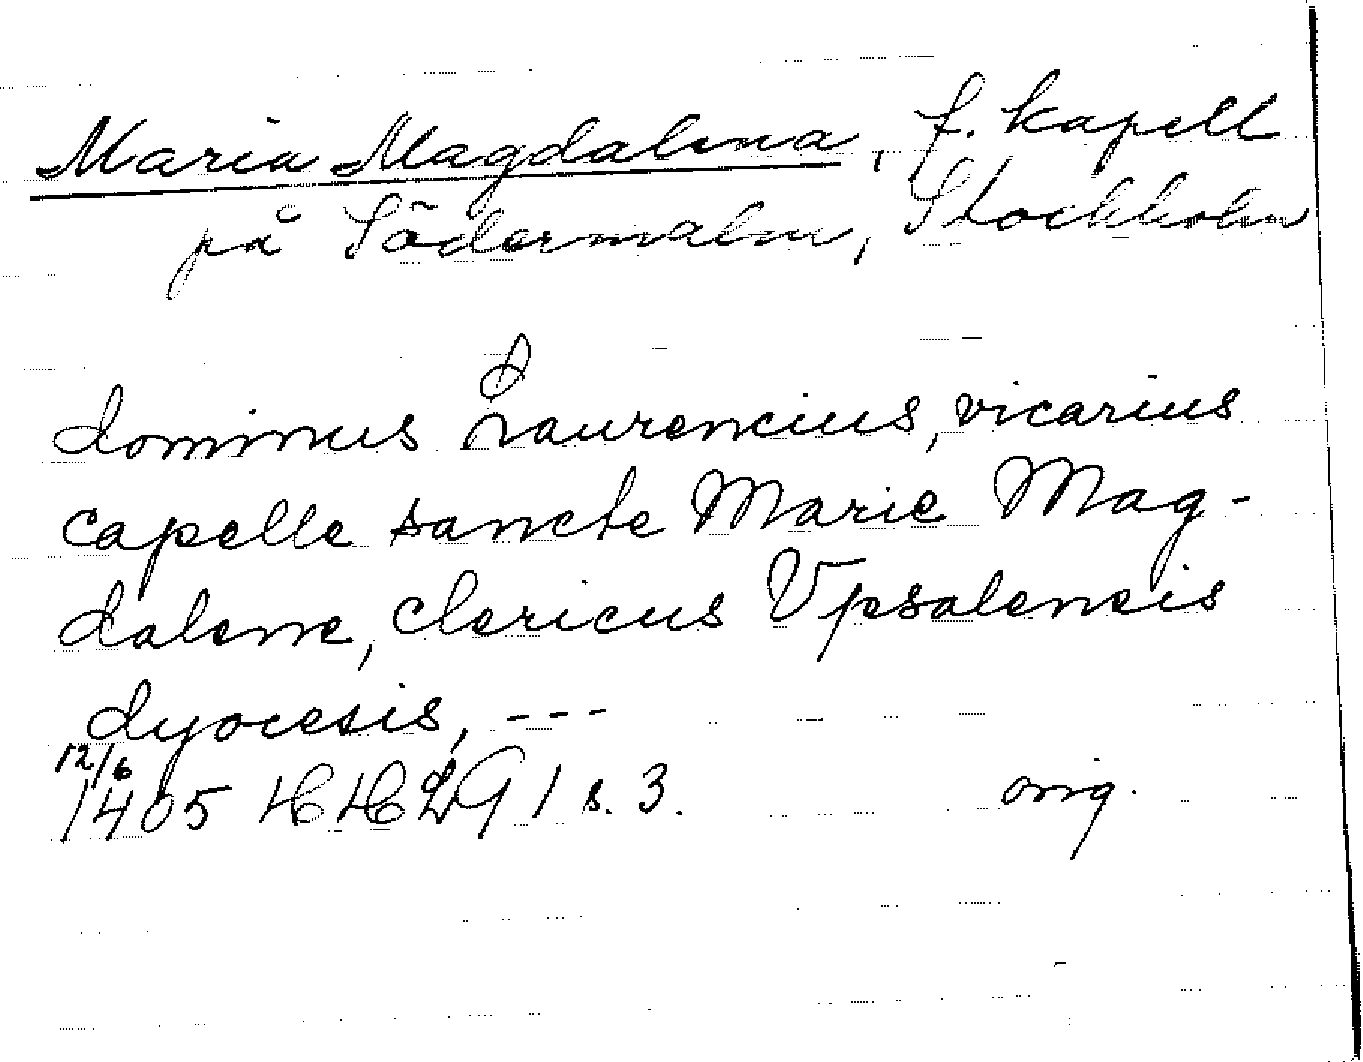 Maria Magdalena, f. kapell
på Södermalm, Stockholm
dominus Laurencius, vicarius
capelle sancte Marie Mag-
dalene, clericus Upsalensis
dyocesis, ---
12/6
1405 s. 3. orig.